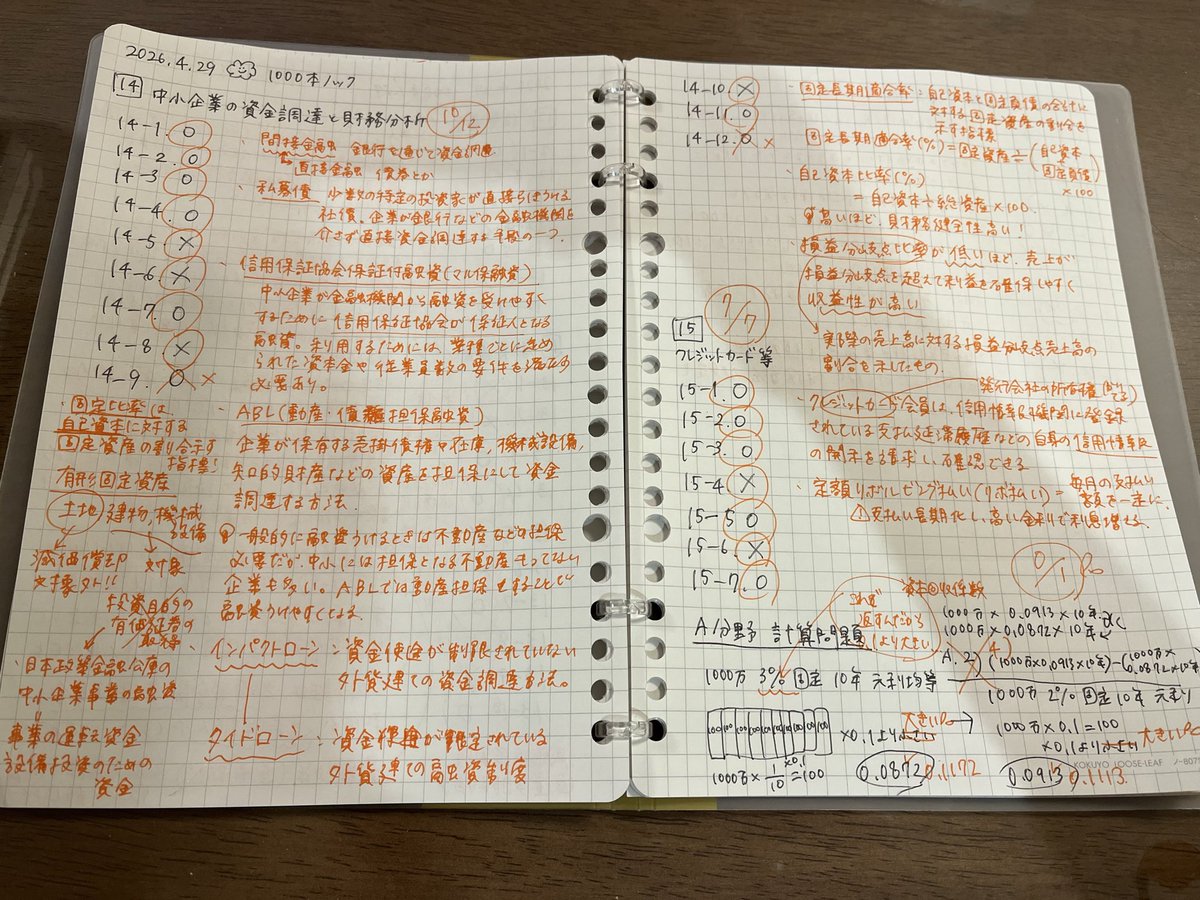 2026.4.29 1000本ノック
14 中小企業の資金調達と財務分析 10/12
14-1. 〇
14-2. 〇
14-3 〇
14-4. 〇
14-5. ×
14-6 ×
14-7. 〇
14-8 ×
14-9. 〇 ×
・固定比率は
自己資本に対する
固定資産の割合示す
指標!
有形固定資産
土地 建物, 機械
設備
減価償却 対象
対象外!!
投資目的の
有価証券の
取得
・日本政策金融公庫の
中小企業事業の融資
事業の運転資金
設備投資のための
資金
・間接金融 銀行を通じて資金調達
直接金融 債券とか
・私募債 少数の特定の投資家が直接引きうける
社債。企業が銀行などの金融機関を
介さず直接資金調達する手段の一つ。
・信用保証協会保証付融資(マル保融資)
中小企業が金融機関から融資を受けやすく
するために信用保証協会が保証人となる
融資。利用するためには、業種ごとに定め
られた資本金や従業員数の要件を満たす
必要あり。
・ABL(動産・債権担保融資)
企業が保有する売掛債権や在庫、機械設備,
知的財産などの資産を担保にして資金
調達する方法.
一般的に融資うけるときは不動産などの担保
必要だが、中小には担保となる不動産もってない
企業も多い。ABLでは動産担保とすることで
融資うけやすくなる
・インパクトローン:資金使途が制限されていない
外貨建ての資金調達方法。
タイドローン:資金使途が限定されている
外貨建ての融資制度
14-10. ×
14-11. 〇
14-12. 〇 ×
・固定長期適合率:自己資本と固定負債の合計に
対する固定資産の割合を
示す指標
固定長期適合率(%)=固定資産÷(自己資本
+
固定負債)
×100
・自己資本比率(%)
=自己資本÷総資産×100.
高いほど、財務健全性高い!
・損益分岐点比率が低いほど、売上が
損益分岐点を超えて利益を確保しやすく
収益性が高い
実際の売上高に対する損益分岐点売上高の
割合を示したもの.
7/7
15
クレジットカード等
15-1. 〇
15-2. 〇
15-3. 〇
15-4 ×
15-5 〇
15-6. ×
15-7. 〇
発行会社の所有権
・クレジットカード会員は、信用情報機関に登録
されている支払延滞履歴などの自身の信用情報
の開示を請求し、確認できる
・定額リボルビング払い(リボ払い)=毎月の支払い
額を一定に、
支払い長期化し、高い金利で利息増える、
0/1
A分野 計算問題
これぞ
返すんだから
1より大きい
資本回収係数
1000万 3% 固定 10年 元利均等
100 100 100 100 100 100 100 100 100 100
1000万×1/10=100
×0.1
×0.1より小さい
大きい
0.0872 0.1172
1000万×0.0913×10年
1000万×0.0872×10年
A. 2) (1000万×0.0913×10年)-(1000万×
0.0872×10年)
1000万 2% 固定 10年 元利
1000万×0.1=100
×0.1より小さい
大きい
0.0913 0.1113.
KOKUYO LOOSE-LEAF